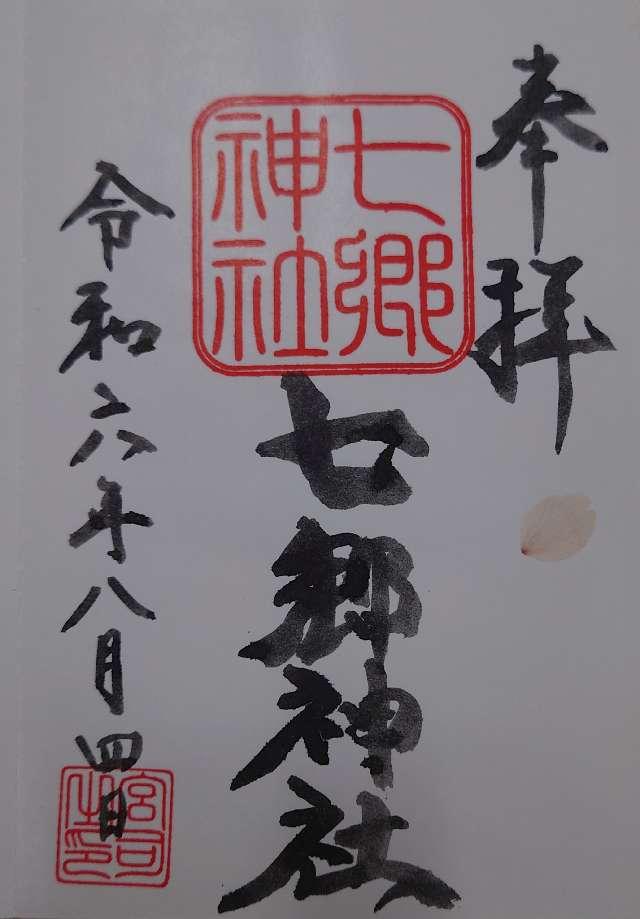 奉拝
七郷
神社
七郷神社
令和六年八月四日
宮司
之印